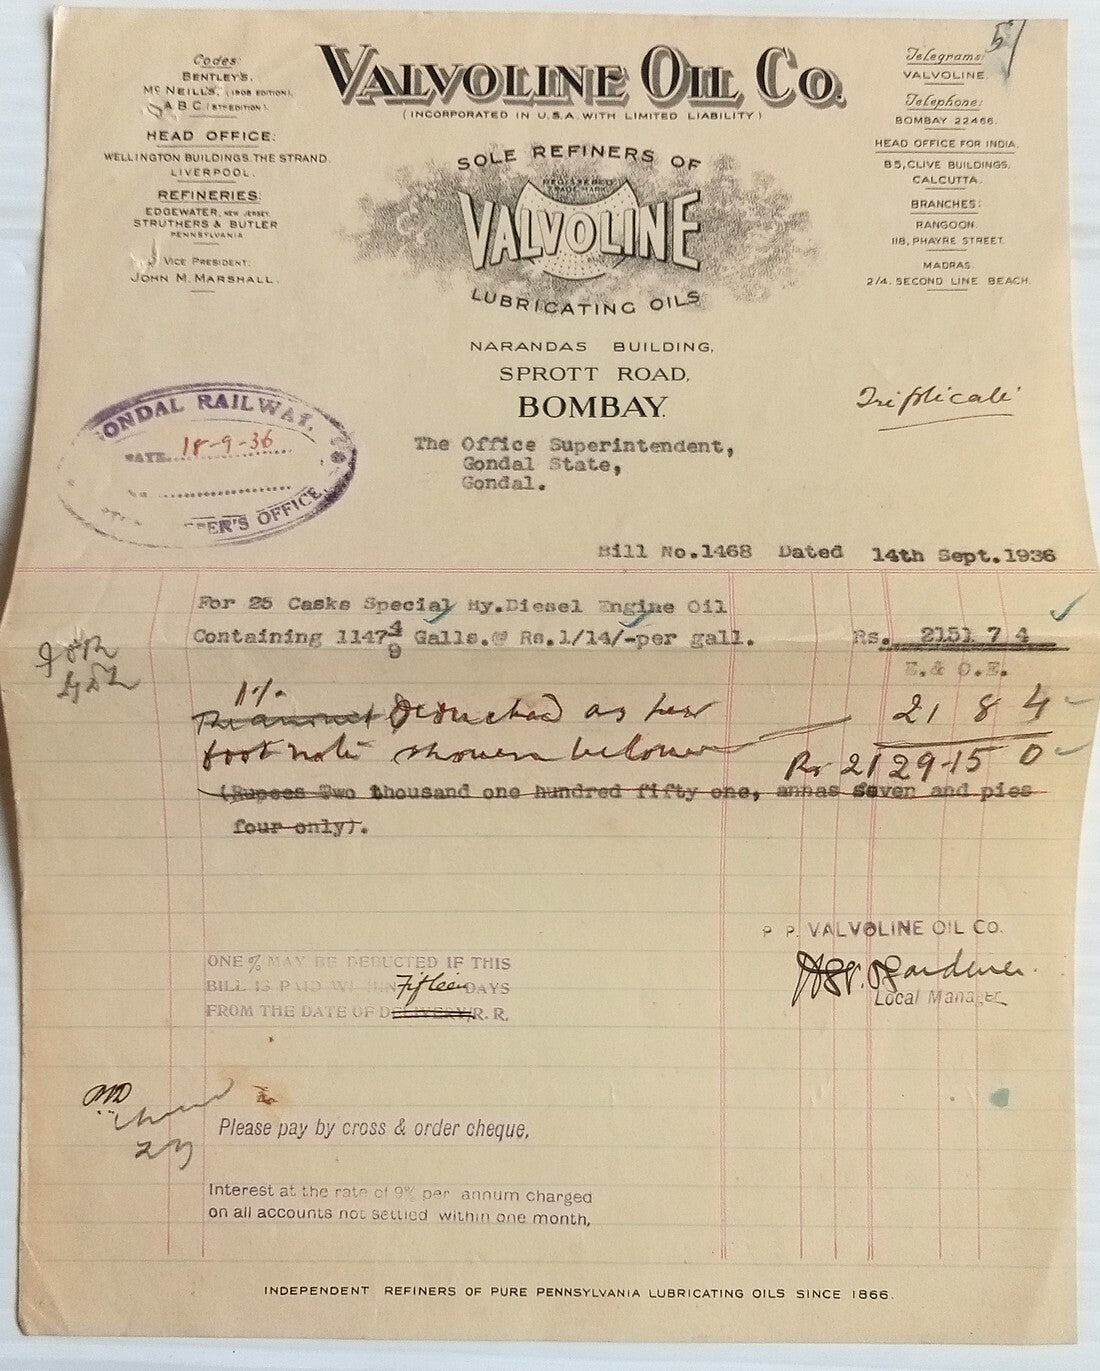 5/
Codes:
BENTLEY'S.
MC NEILL'S. (1908 EDITION),
A B C (5TH EDITION).
HEAD OFFICE:
WELLINGTON BUILDINGS. THE STRAND.
LIVERPOOL.
REFINERIES:
EDGEWATER, NEW JERSEY.
STRUTHERS & BUTLER
PENNSYLVANIA
VICE PRESIDENT:
JOHN M. MARSHALL.
VALVOLINE OIL CO.
(INCORPORATED IN U.S.A. WITH LIMITED LIABILITY)
SOLE REFINERS OF
REGISTERED
TRADE MARK
VALVOLINE
LUBRICATING OILS
Telegrams:
VALVOLINE.
Telephone:
BOMBAY 22466.
HEAD OFFICE FOR INDIA.
B5, CLIVE BUILDINGS.
CALCUTTA.
BRANCHES:
RANGOON.
11B, PHAYRE STREET.
MADRAS.
2/4. SECOND LINE BEACH.
NARANDAS BUILDING,
SPROTT ROAD,
BOMBAY.
Triplicate
GONDAL RAILWAY.
DATE. 18-9-36
No
OFFICE
The Office Superintendent,
Gondal State,
Gondal.
Bill No.1468 Dated 14th Sept.1936
For 25 Casks Special Hy.Diesel Engine Oil
Containing 1147 4/9 Galls.@ Rs.1/14/-per gall. Rs. 2151 7 4
E.& O.E.
1%
The amount Deducted as per 21 8 4
foot note shown below Rs 2129-15 0
(Rupees Two thousand one hundred fifty one, annas seven and pies
four only).
P. P. VALVOLINE OIL CO.
Gardener.
Local Manager
ONE % MAY BE DEDUCTED IF THIS
BILL IS PAID WITHIN Fifteen DAYS
FROM THE DATE OF DELIVERY/R. R.
Please pay by cross & order cheque,
Interest at the rate of 9% per annum charged
on all accounts not settled within one month,
INDEPENDENT REFINERS OF PURE PENNSYLVANIA LUBRICATING OILS SINCE 1866.